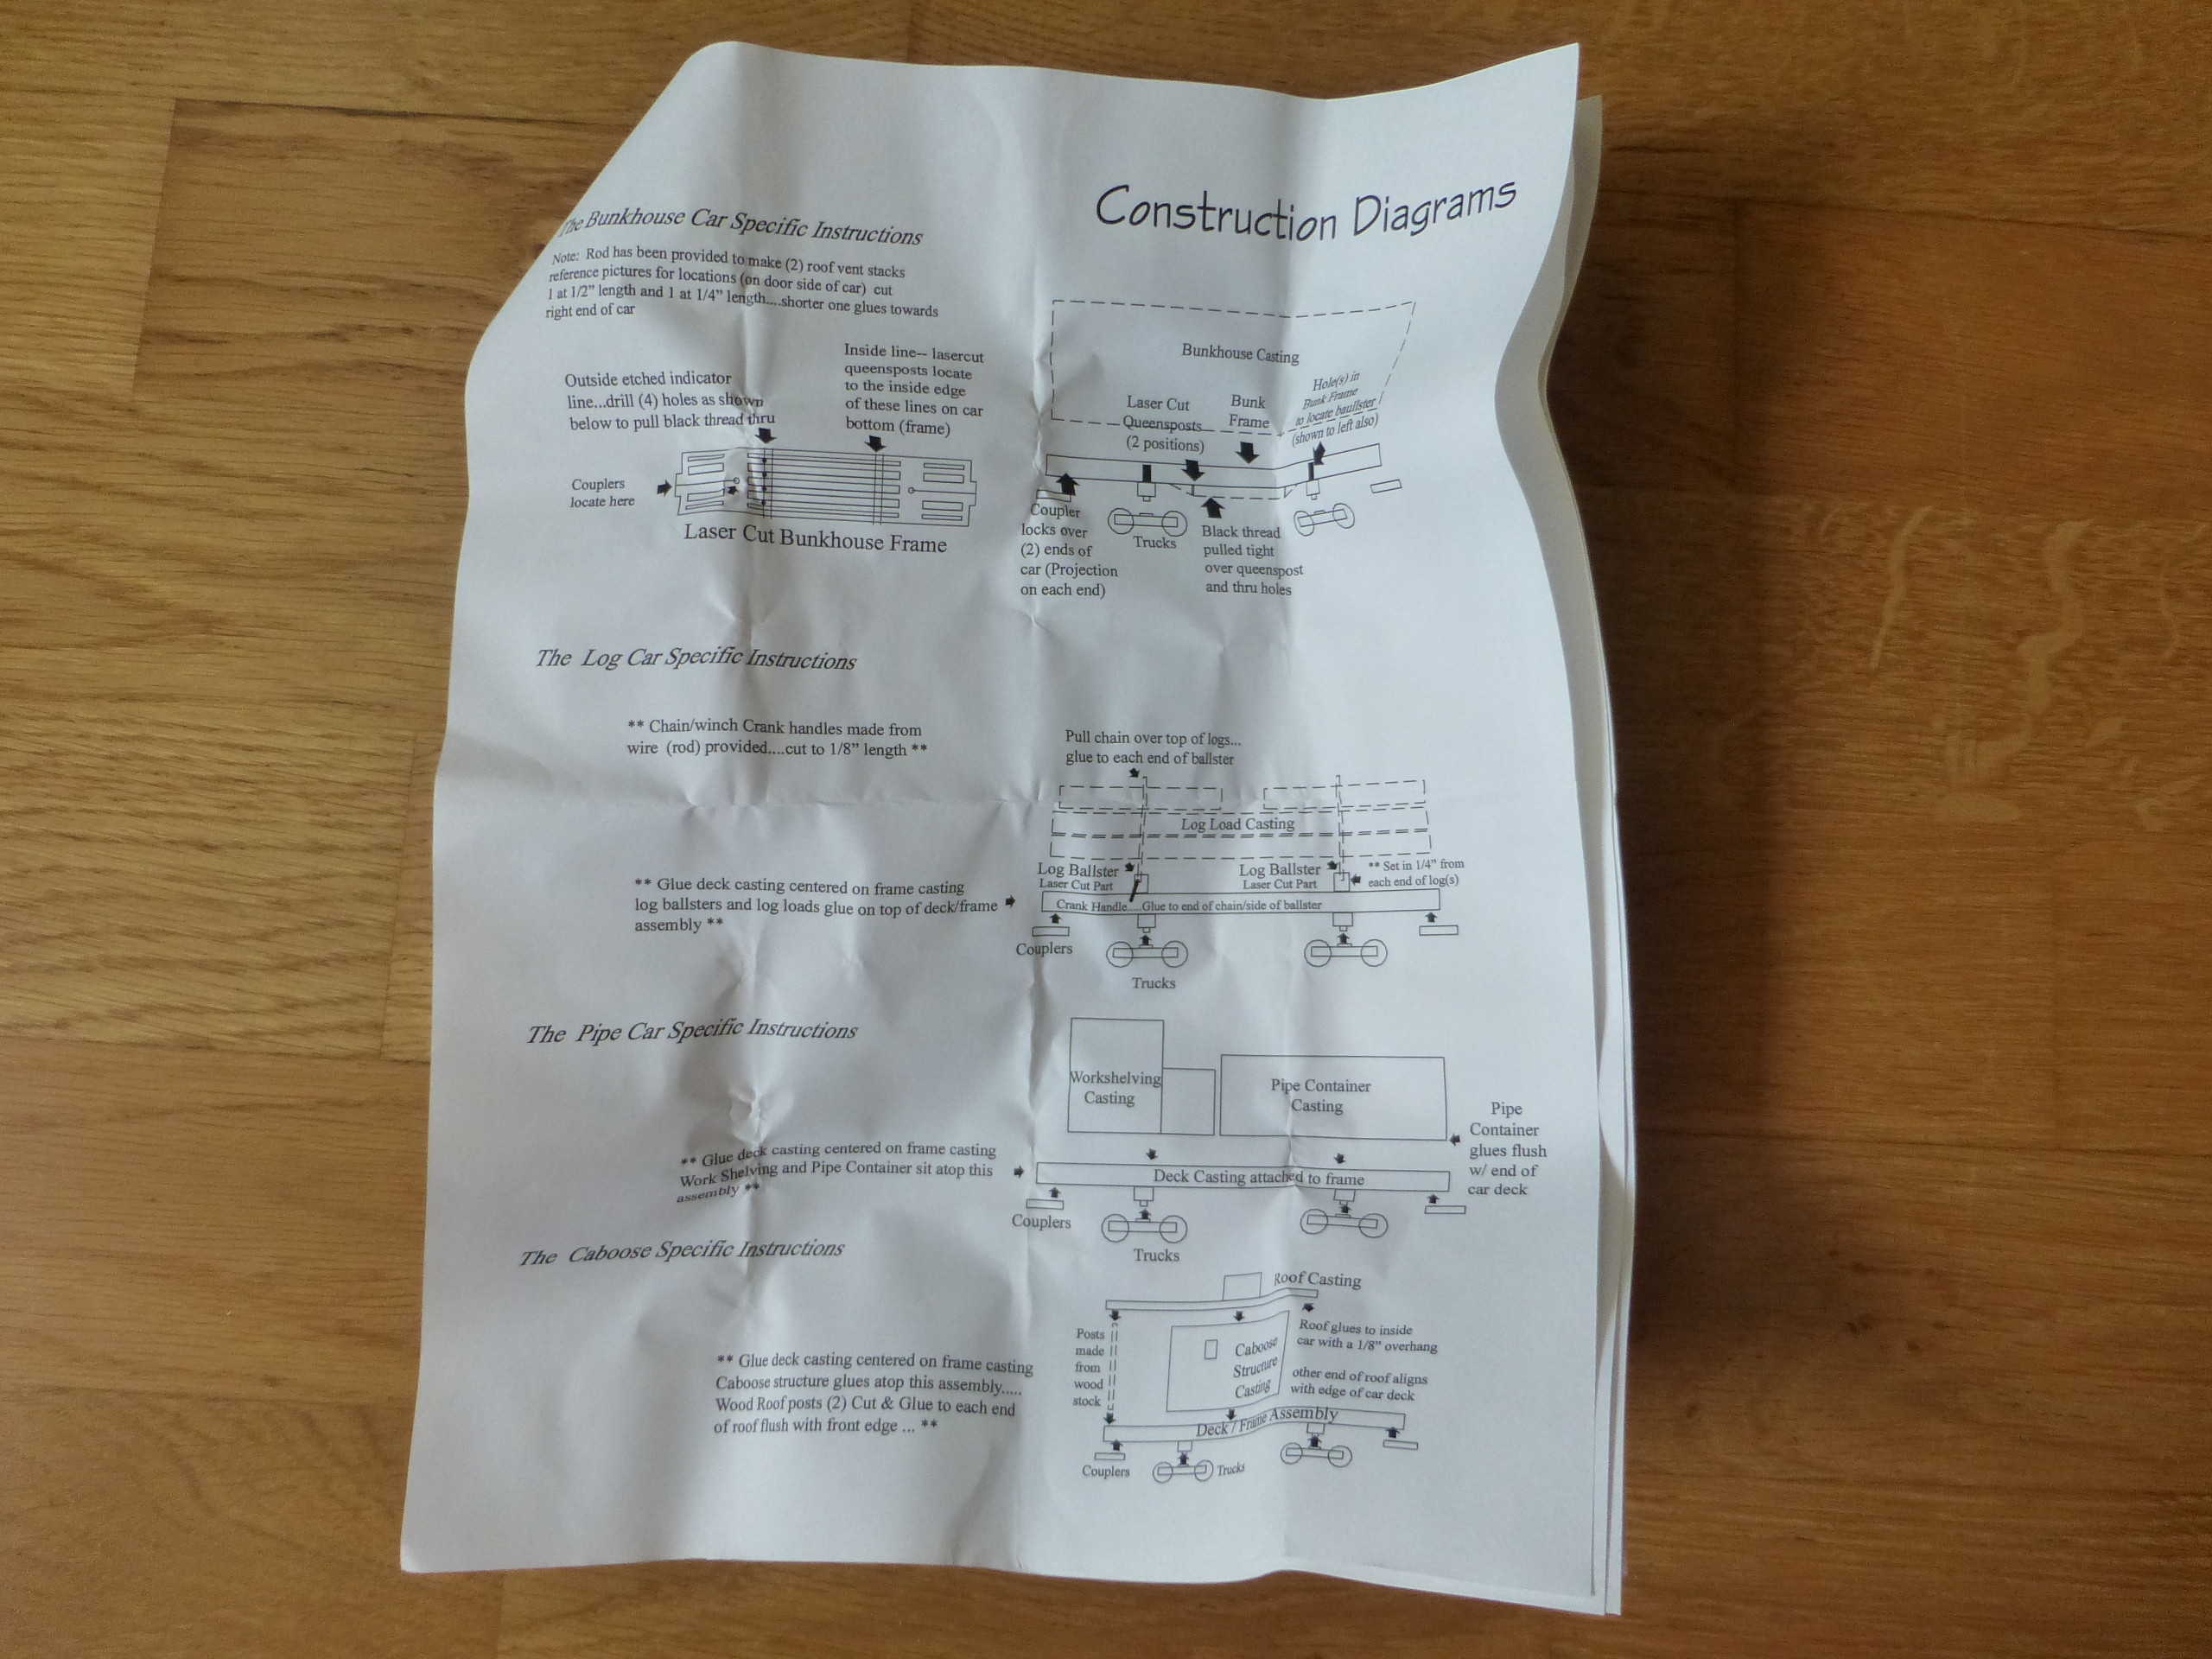 Construction Diagrams
The Bunkhouse Car Specific Instructions
Note: Rod has been provided to make (2) roof vent stacks
reference pictures for locations (on door side of car) cut
1 at 1/2” length and 1 at 1/4” length....shorter one glues towards
right end of car
Outside etched indicator
line...drill (4) holes as shown
below to pull black thread thru
Inside line-- lasercut
queensposts locate
to the inside edge
of these lines on car
bottom (frame)
Couplers
locate here
Laser Cut Bunkhouse Frame
Bunkhouse Casting
Laser Cut
Queensposts
(2 positions)
Bunk
Frame
Hole(s) in
Bunk Frame
to locate baullster
(shown to left also)
Coupler
locks over
(2) ends of
car (Projection
on each end)
Trucks
Black thread
pulled tight
over queenspost
and thru holes
The Log Car Specific Instructions
** Chain/winch Crank handles made from
wire (rod) provided....cut to 1/8” length **
Pull chain over top of logs...
glue to each end of ballster
Log Load Casting
Log Ballster
Laser Cut Part
Log Ballster
Laser Cut Part
** Set in 1/4” from
each end of log(s)
** Glue deck casting centered on frame casting
log ballsters and log loads glue on top of deck/frame
assembly **
Crank Handle.....Glue to end of chain/side of ballster
Couplers
Trucks
The Pipe Car Specific Instructions
Workshelving
Casting
Pipe Container
Casting
Pipe
Container
glues flush
w/ end of
car deck
** Glue deck casting centered on frame casting
Work Shelving and Pipe Container sit atop this
assembly **
Deck Casting attached to frame
Couplers
Trucks
The Caboose Specific Instructions
Roof Casting
Posts
made
from
wood
stock
Caboose
Structure
Casting
Roof glues to inside
car with a 1/8” overhang
other end of roof aligns
with edge of car deck
** Glue deck casting centered on frame casting
Caboose structure glues atop this assembly.....
Wood Roof posts (2) Cut & Glue to each end
of roof flush with front edge ... **
Deck / Frame Assembly
Couplers
Trucks